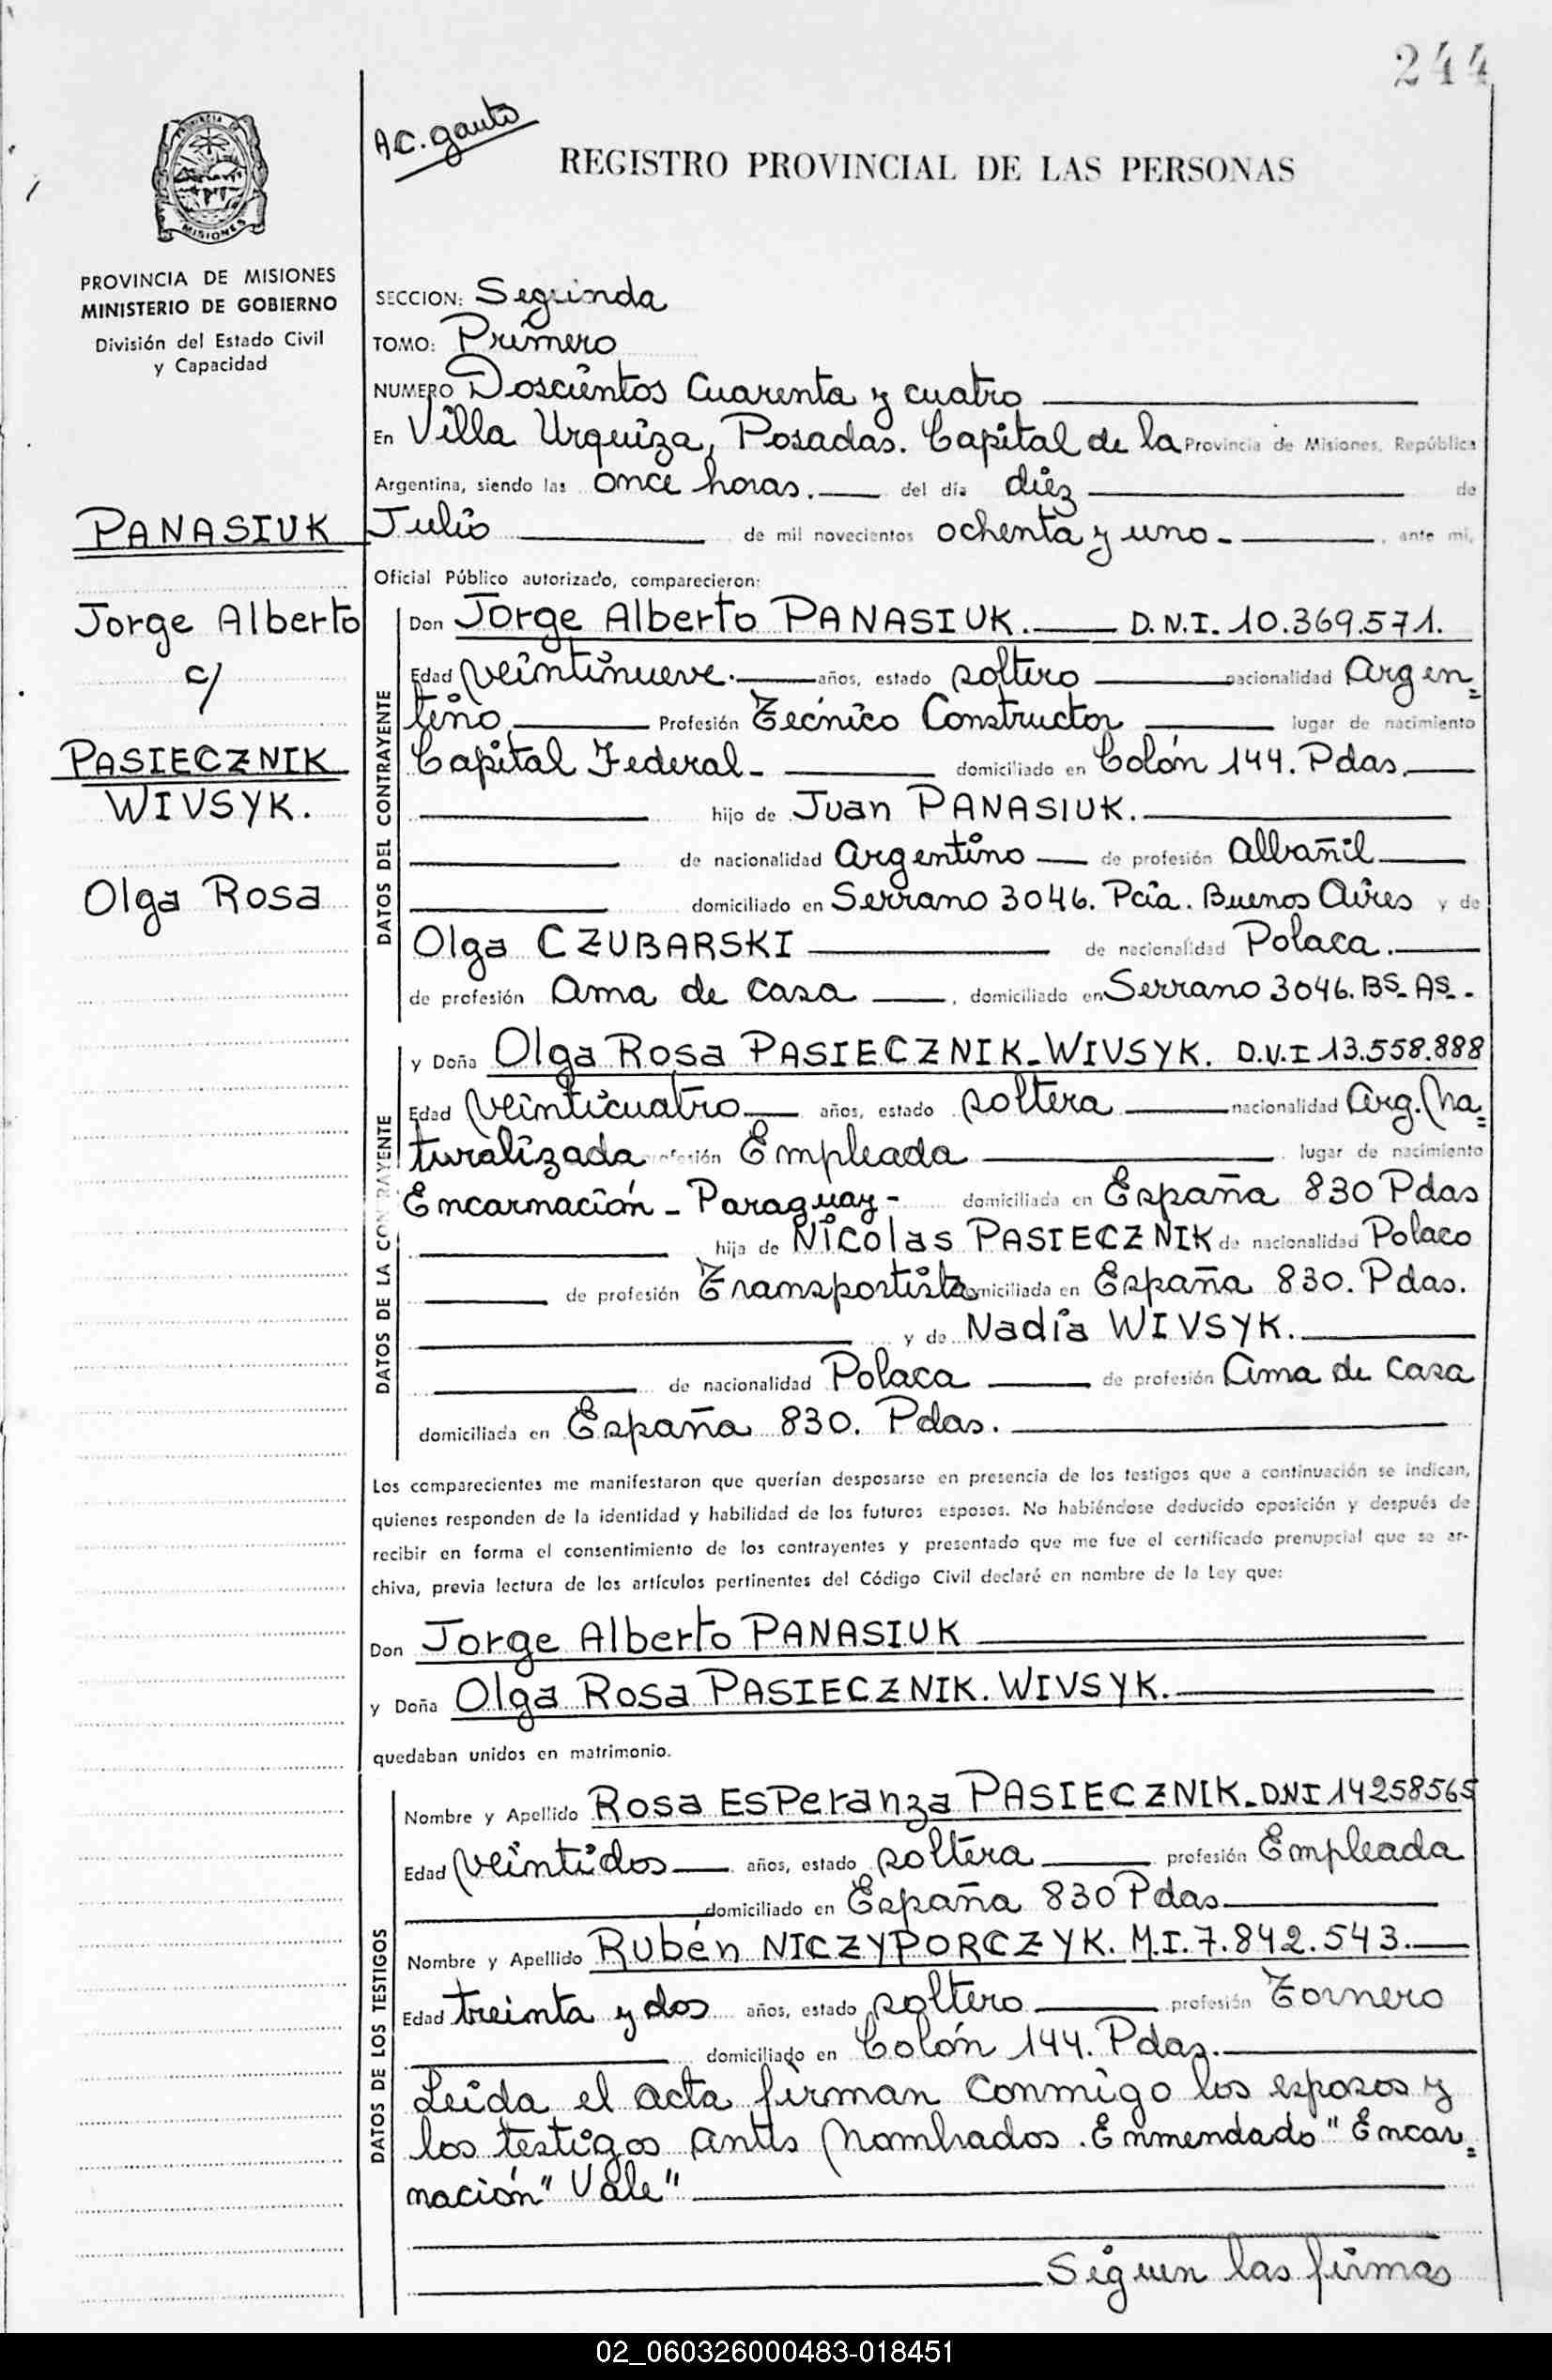 244
AC. gauto
REGISTRO PROVINCIAL DE LAS PERSONAS
MISIONES
PROVINCIA DE MISIONES
MINISTERIO DE GOBIERNO
División del Estado Civil
y Capacidad
PANASIUK
Jorge Alberto
c/
PASIECZNIK
WIVSYK.
Olga Rosa
SECCION: Segunda
TOMO: Primero
NUMERO Doscientos Cuarenta y cuatro
En Villa Urquiza, Posadas. Capital de la Provincia de Misiones, República
Argentina, siendo las once horas. del día diez de
Julio de mil novecientos ochenta y uno - , ante mi,
Oficial Público autorizado, comparecieron:
DATOS DEL CONTRAYENTE
Don Jorge Alberto PANASIUK. D.N.I. 10.369.571.
Edad veintinueve. años, estado soltero nacionalidad Argen=
tino Profesión Tecnico Constructor lugar de nacimiento
Capital Federal - domiciliado en Colón 144. Pdas.
hijo de Juan PANASIUK.
de nacionalidad Argentino de profesión Albañil
domiciliado en Serrano 3046. Pcia. Buenos Aires y de
Olga CZUBARSKI de nacionalidad Polaca.
de profesión Ama de casa , domiciliado en Serrano 3046. BS- AS-.
DATOS DE LA CONTRAYENTE
y Doña Olga Rosa PASIECZNIK-WIVSYK. D.V.I 13.558.888
Edad veinticuatro años, estado soltera nacionalidad Arg. (na=
turalizada profesión Empleada lugar de nacimiento
Encarnación - Paraguay - domiciliada en España 830 Pdas
hija de Nicolas PASIECZNIK de nacionalidad Polaco
de profesión Transportista domiciliada en España 830. Pdas.
y de Nadia WIVSYK.
de nacionalidad Polaca de profesión Ama de casa
domiciliada en España 830. Pdas.
Los comparecientes me manifestaron que querían desposarse en presencia de los testigos que a continuación se indican,
quienes responden de la identidad y habilidad de los futuros esposos. No habiéndose deducido oposición y después de
recibir en forma el consentimiento de los contrayentes y presentado que me fue el certificado prenupcial que se ar-
chiva, previa lectura de los artículos pertinentes del Código Civil declaré en nombre de la Ley que:
Don Jorge Alberto PANASIUK
y Doña Olga Rosa PASIECZNIK. WIVSYK.
quedaban unidos en matrimonio.
DATOS DE LOS TESTIGOS
Nombre y Apellido Rosa Esperanza PASIECZNIK. DNI 14258565
Edad veintidos años, estado soltera profesión Empleada
domiciliado en España 830 Pdas
Nombre y Apellido Rubén NICZYPORCZYK. M.I. 7.842.543.
Edad treinta y dos años, estado soltero profesión Tornero
domiciliado en Colón 144. Pdas.
Leida el acta firman conmigo los esposos y
los testigos antes nombrados. Enmendado "Encar=
nación" Vale"
Siguen las firmas
02_060326000483-018451